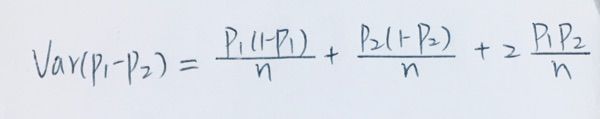 Var(p₁-p₂) = p₁(1-p₁)/n + p₂(1-p₂)/n + 2 p₁p₂/n